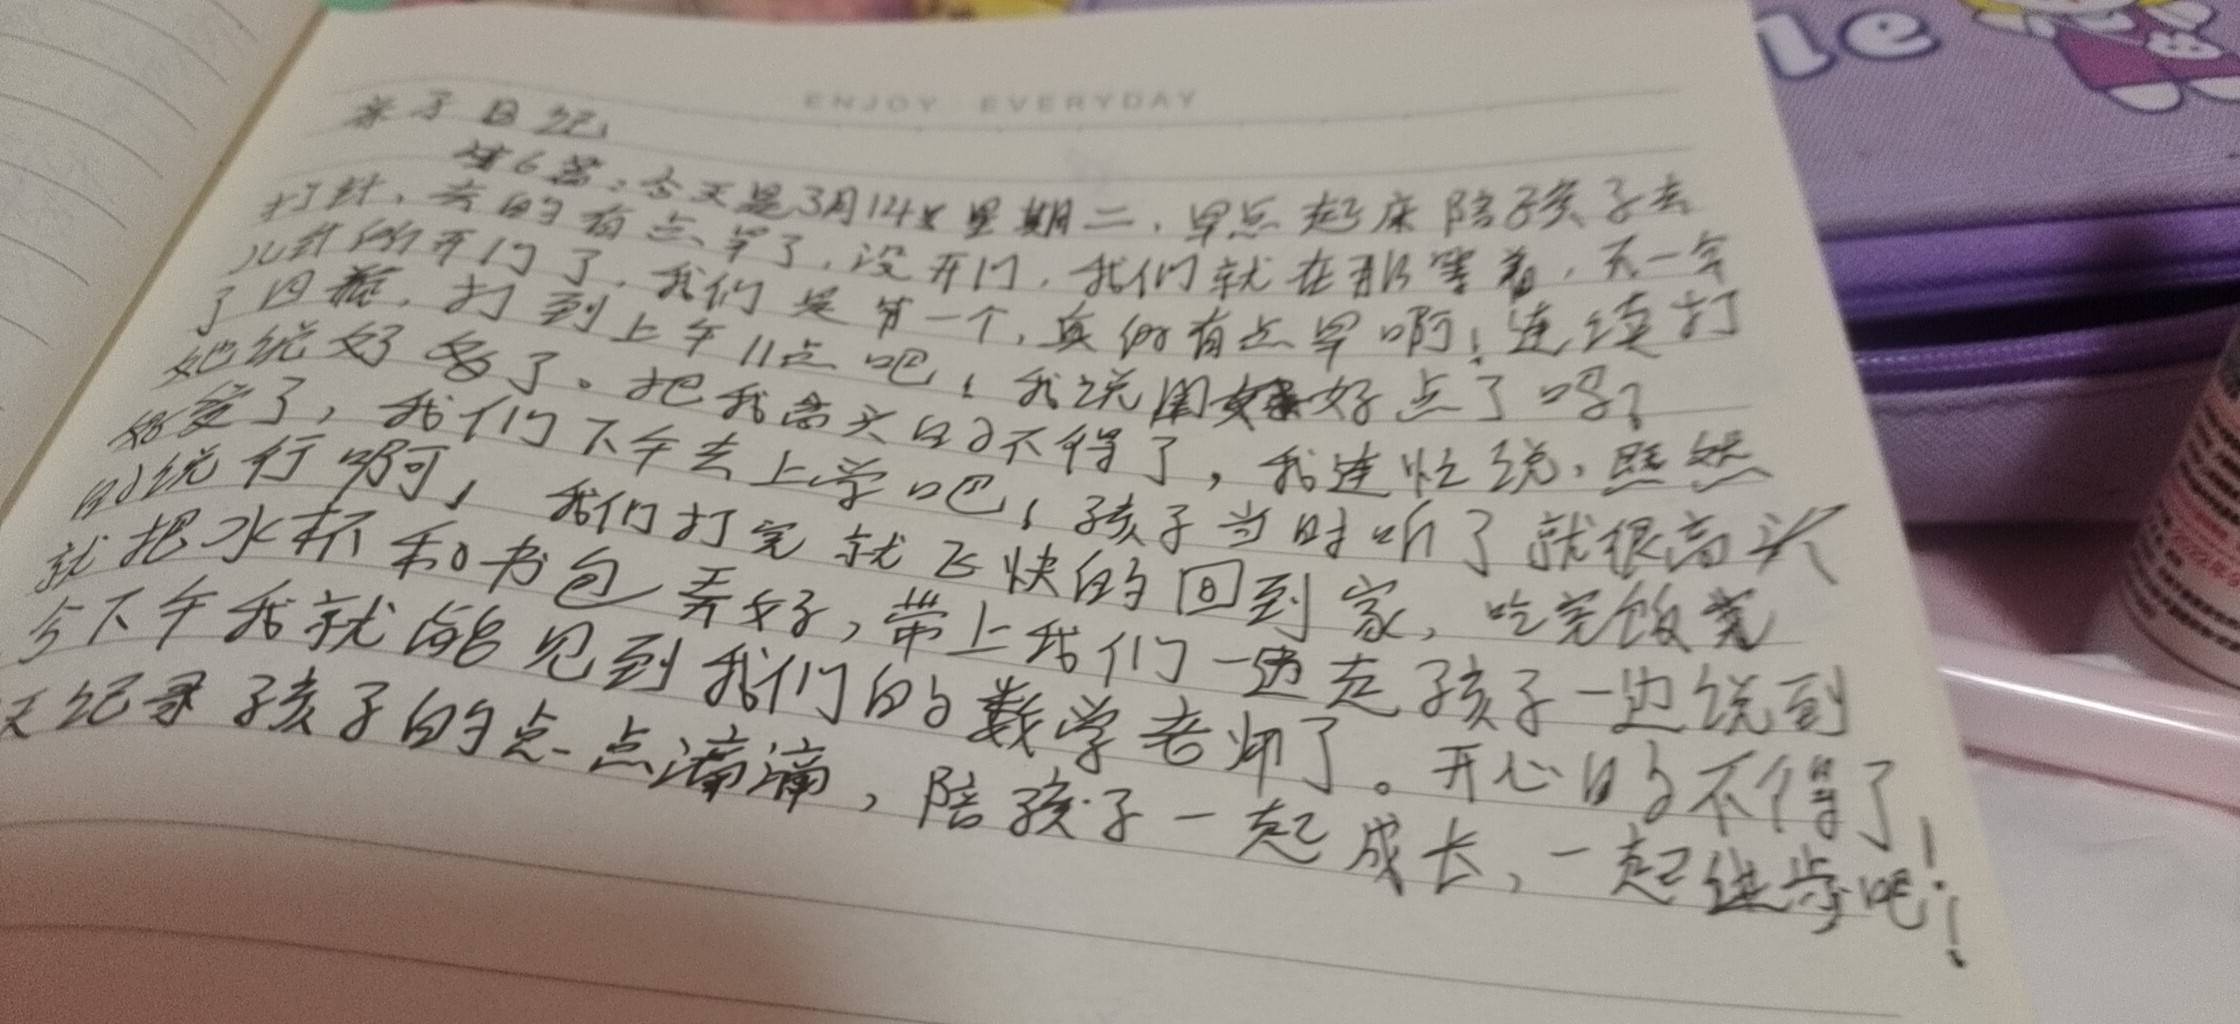 ENJOY EVERYDAY
le
亲子日记
第6篇:今天是3月14日星期二,早点起床陪孩子去
打针,去的有点早了,没开门,我们就在那等着,不一会
儿针所开门了,我们是第一个,真的有点早啊!连续打
了四瓶,打到上午11点吧!我说闺女好点了吗?
她说好多了。把我高兴的不得了,我连忙说,既然
好受了,我们下午去上学吧!孩子当时听了就很高兴
的说行啊,我们打完就飞快的回到家,吃完饭
就把水杯和书包弄好,带上我们一边走孩子一边说到
今下午我就能见到我们的数学老师了。开心的不得了!
天记录孩子的点点滴滴,陪孩子一起成长,一起进步吧!